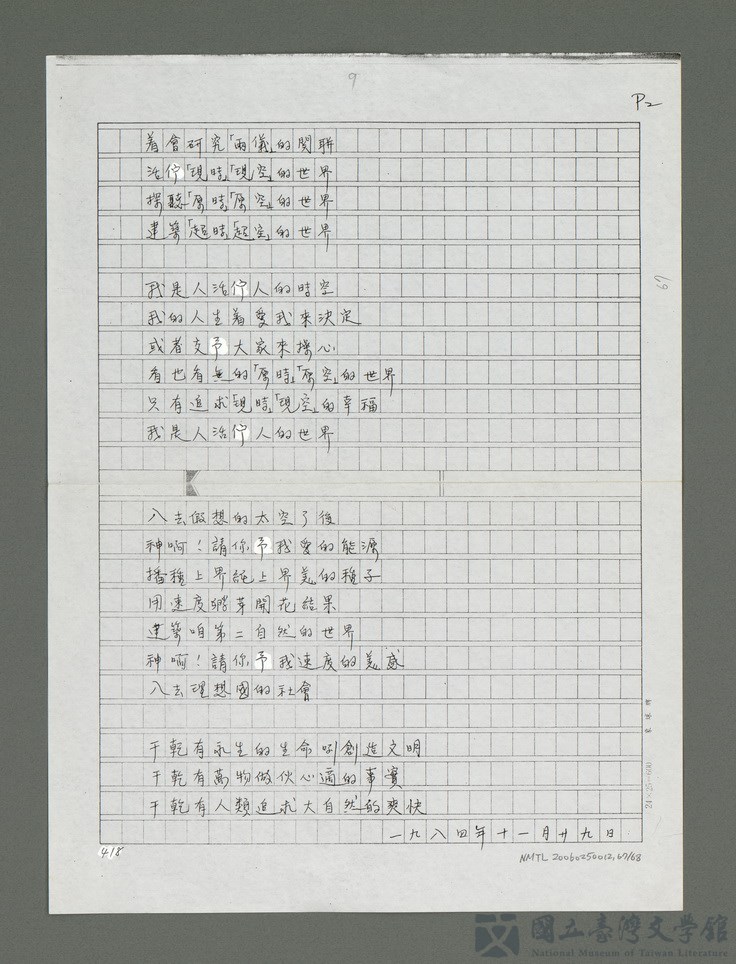 9
P2
着會研究「兩儀」的関聯
活佇「現時」「現空」的世界
探聽「原時」「原空」的世界
建築「超時」「超空」的世界
我是人活佇人的時空
我的人生着愛我來決定
或者交予大家來操心
有也有無的「原時」「原空」的世界
只有追求「現時」「現空」的幸福
我是人活佇人的世界
67
入去假想的太空了後
神啊！請你予我愛的能源
播種上界純上界美的種子
用速度發芽開花結果
建築咱第二自然的世界
神啊！請你予我速度的美感
入去理想國的社會
干乾有永生的生命咧創造文明
干乾有萬物做伙心適的事實
干乾有人類追求大自然的爽快
一九八四年十一月廿九日
24×25=600
418
NMTL 20060250012, 67/68
國立臺灣文學館
National Museum of Taiwan Literature